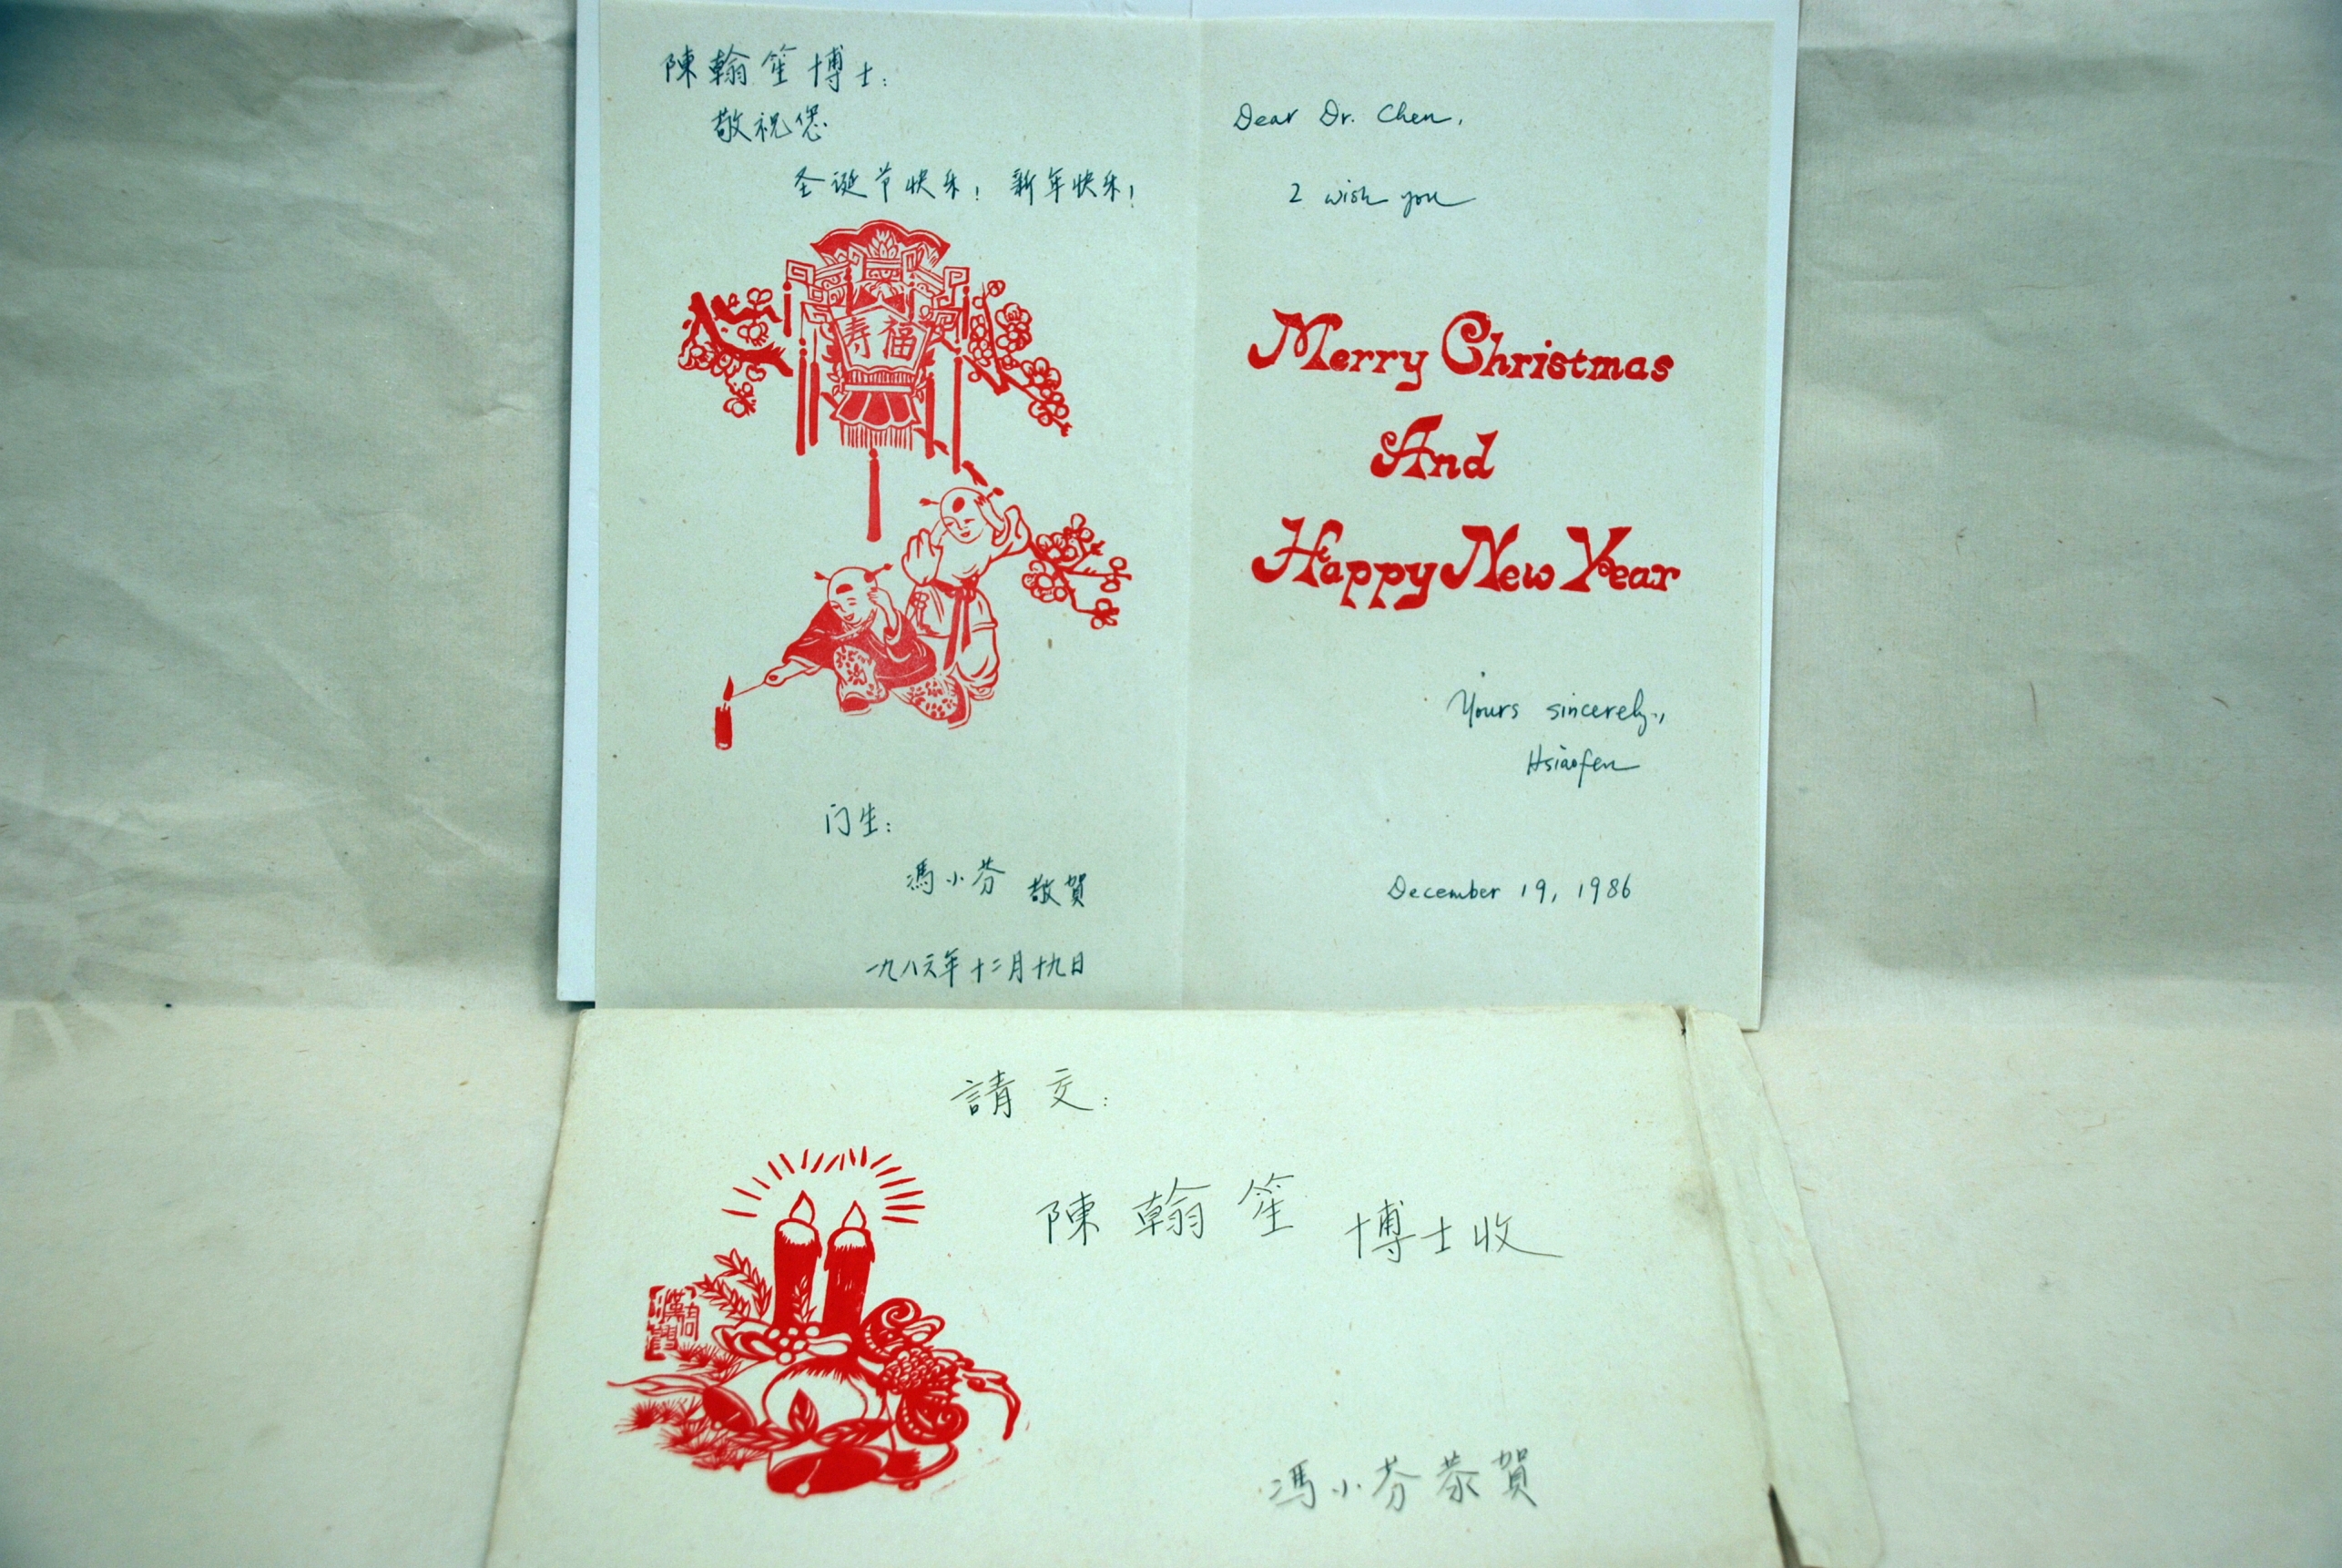 陳翰笙博士:
敬祝您
圣诞节快乐! 新年快乐!
寿福
门生:
馮小芬 敬賀
一九八六年十二月十九日
Dear Dr. Chen,
I wish you
Merry Christmas
And
Happy New Year
Yours sincerely,
Hsiaofen
December 19, 1986
請交:
陳翰笙 博士收
馮小芬恭賀